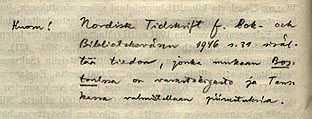 Huom! Nordisk Tidskrift f. Bok- och
Biblioteksväsen 1946 s. 31 sisäl-
tää tiedon, jonka mukaan Bos-
tonissa on varastokirjasto ja Tans-
kassa valmistellaan piirustuksia.